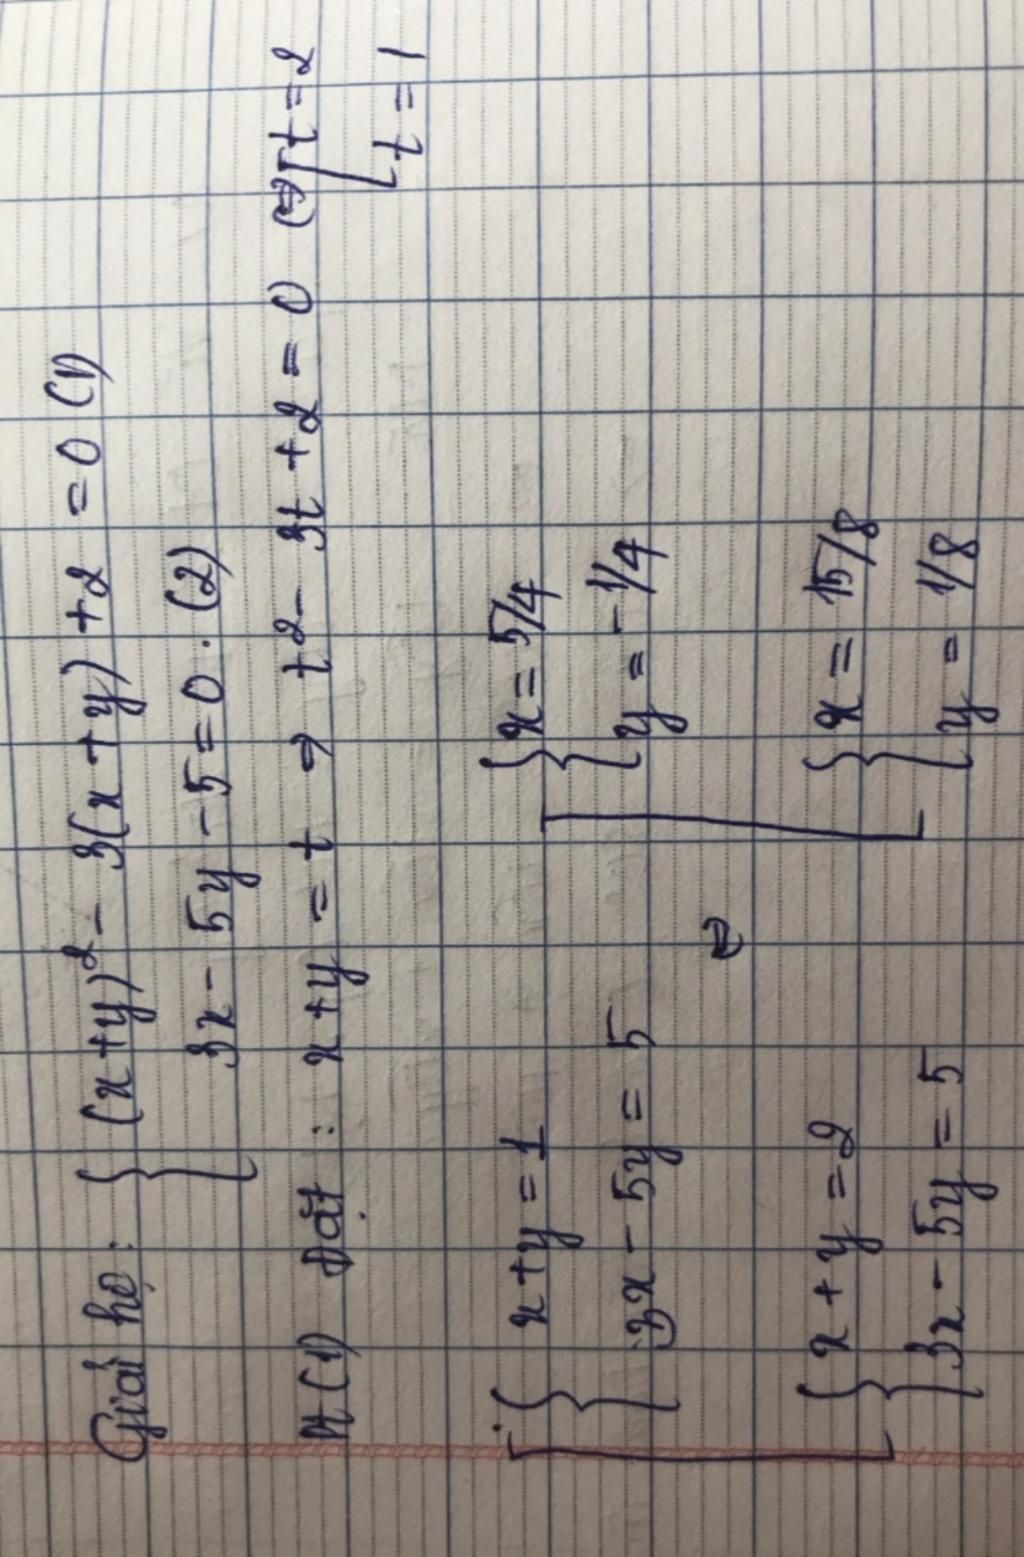 Giải hệ: { (x+y)² - 3(x+y) +2 = 0 (1)
3x - 5y - 5 = 0. (2)
Pt (1) Đặt : x+y = t ⇒ t² - 3t + 2 = 0 ⇔ [ t = 2
t = 1
[ { x+y = 1
3x - 5y = 5
⇔
{ x = 5/4
y = - 1/4
{ x + y = 2
3x - 5y = 5
{ x = 15/8
y = 1/8